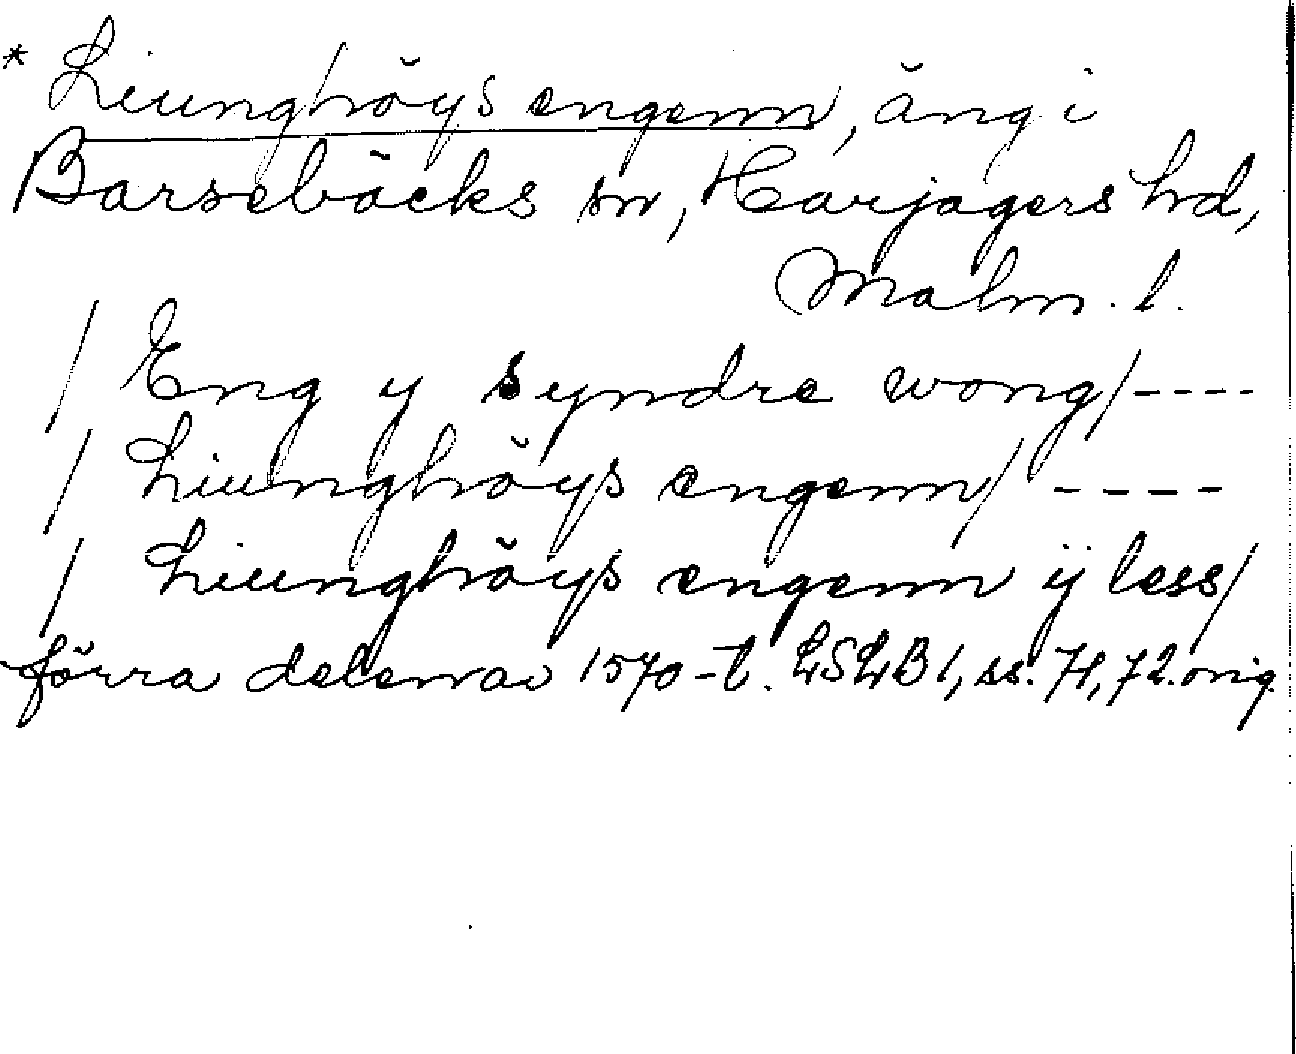 * Liunghöys engenn, äng i
Barsebäcks sn, Harjagers hd,
Malm. l.
/ Eng y syndre wong/----
/ Liunghöys engenn/ ----
/ Liunghöys engenn ij less/
förra delen av 1570-t. LSLB 1, ss. 71, 72. orig.